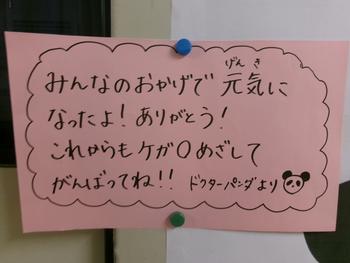 みんなのおかげで 元気に
なったよ！ありがとう！
これからもケガ0めざして
がんばってね！！ ドクターパンダより
げんき